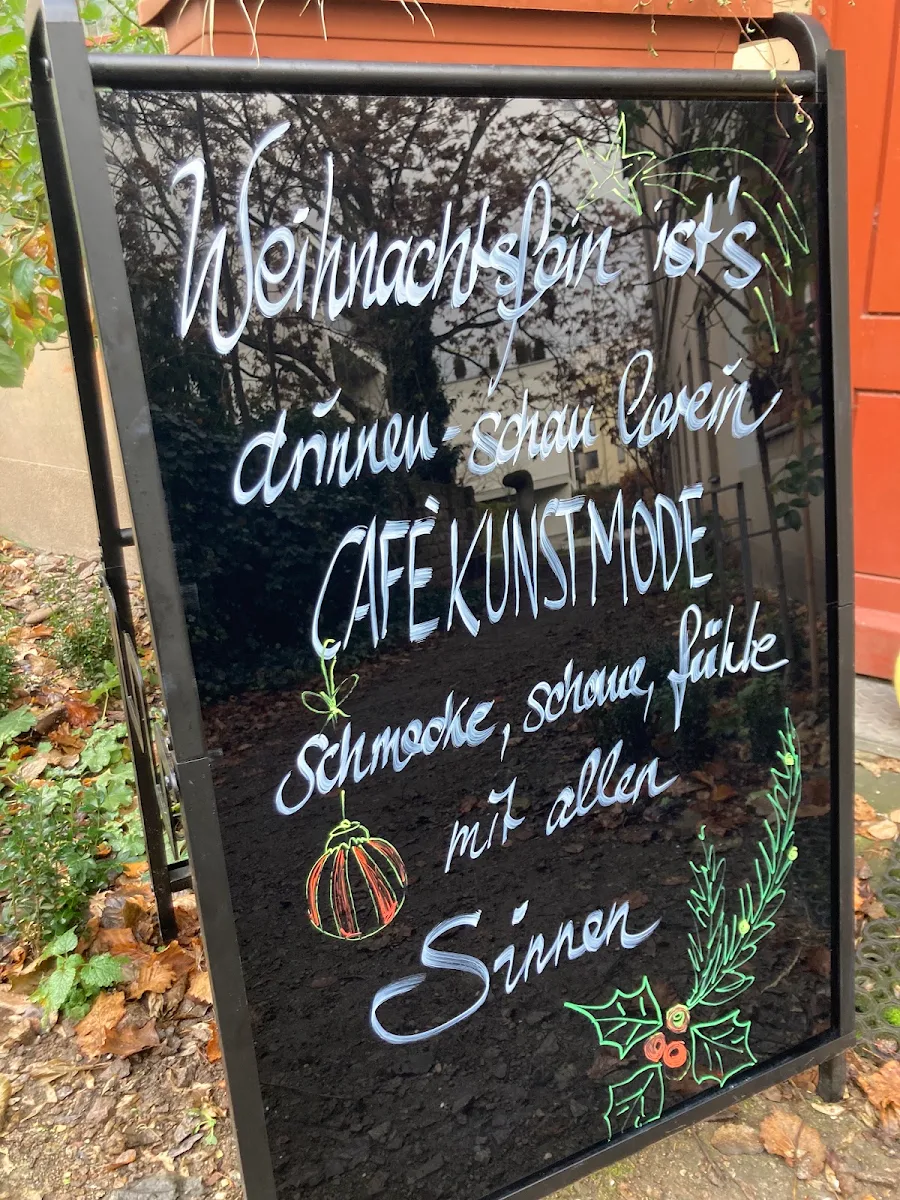 Weihnachtsfein ist's
drinnen - schau herein
CAFÈ KUNSTMODE
Schmecke, schaue, fühle
mit allen
Sinnen